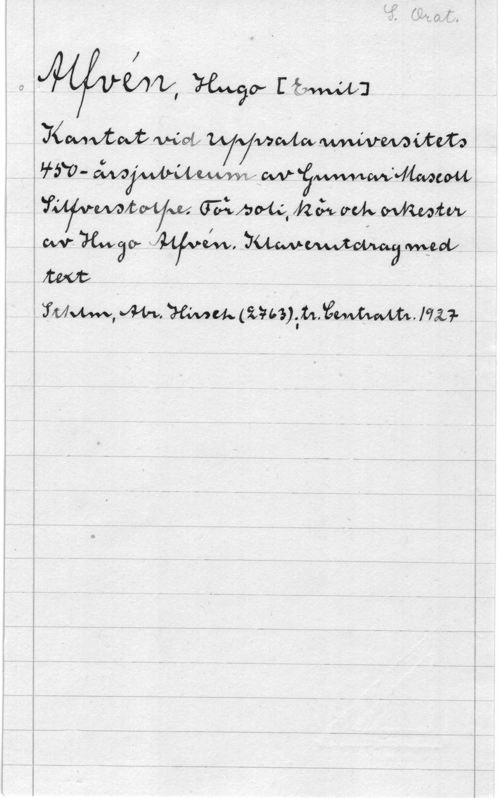 S. Orat.
Alfvén, Hugo [Emil]
Kantat vid Uppsala universitets
450-årsjubileum av Gunnar Mascoll
Silfverstolpe. För soli, kör och orkester
av Hugo Alfvén. Klaverutdrag med
text
Sthlm, Abr. Hirsch (2763); tr. Centraltr. 1927